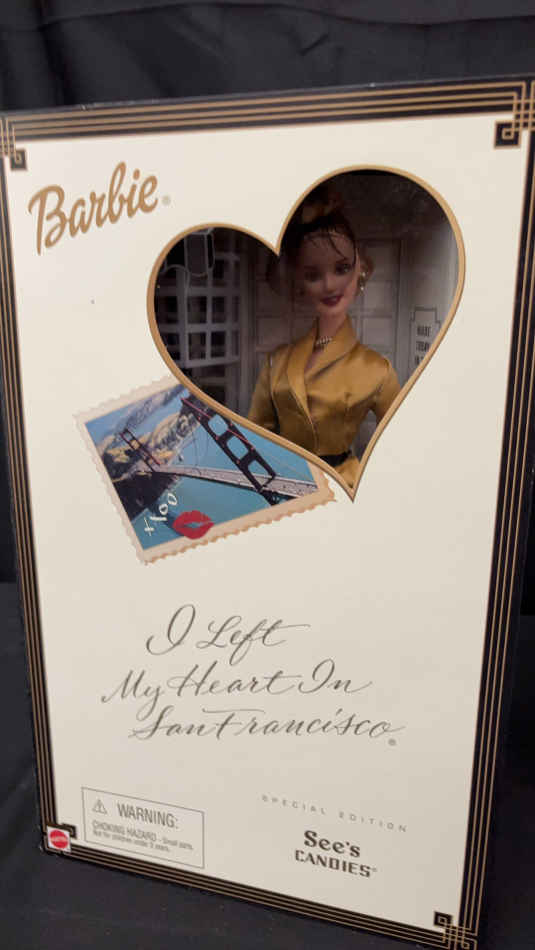 Barbie®
MADE
TODAY
xoxo
I Left
My Heart In
San Francisco®
WARNING:
CHOKING HAZARD - Small parts.
Not for children under 3 years.
SPECIAL EDITION
See's
CANDIES®